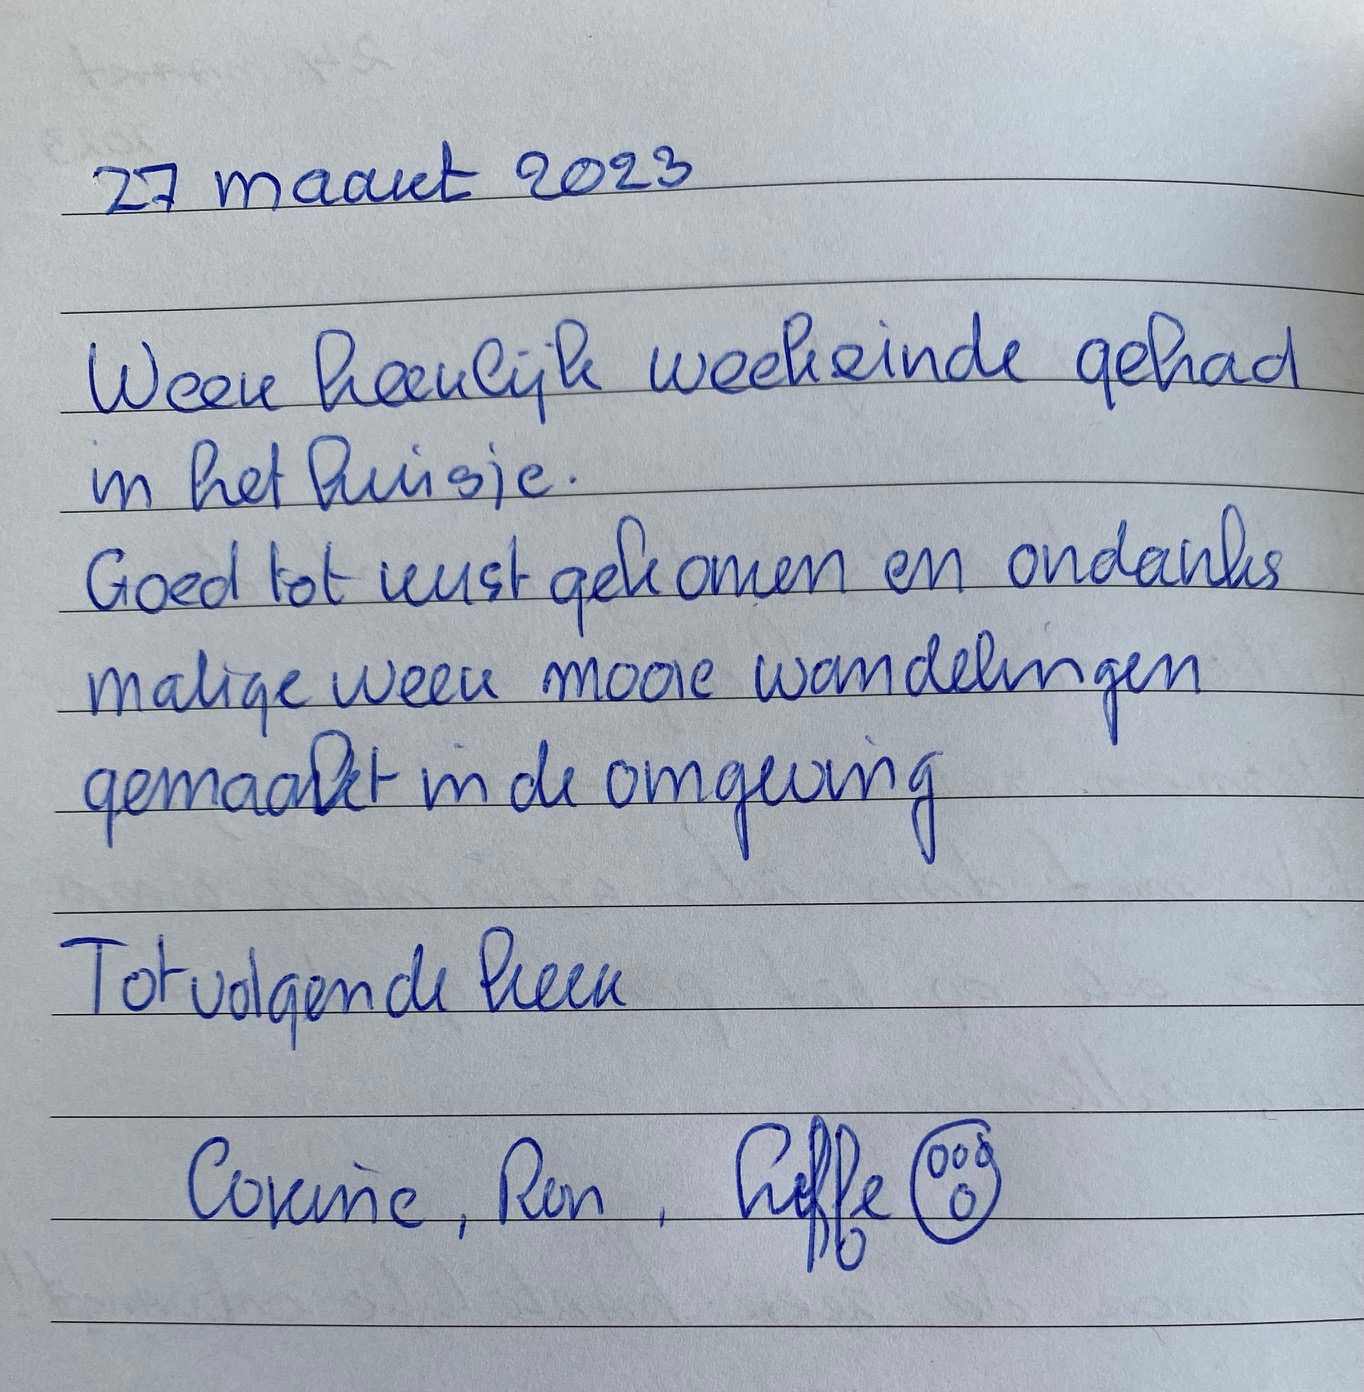 27 maart 2023
Weer heerlijk weekeinde gehad
in het huisje.
Goed tot rust gekomen en ondanks
matige weer mooie wandelingen
gemaakt in de omgeving
Tot volgende keer
Corine, Ron,